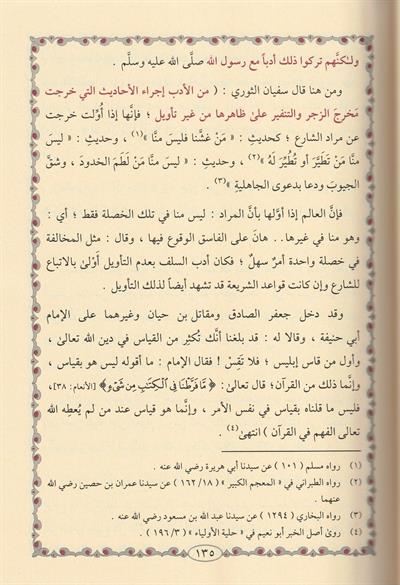 ولكنَّهم تركوا ذلك أدباً مع رسول الله صلَّى الله عليه وسلَّم .
ومن هنا قال سفيان الثوري : ( من الأدب إجراء الأحاديث التي خرجت
مَخرجَ الزجر والتنفير علىٰ ظاهرها من غير تأويل ؛ فإنَّها إذا أُوِّلت خرجت
عن مراد الشارع ؛ كحديثِ : « مَنْ غشَّنا فليسَ منَّا »(١) ، وحديثِ : « ليسَ
منَّا مَنْ تَطيَّرَ أو تُطُيِّرَ لَهُ »(٢) ، وحديثِ : « ليسَ منَّا مَنْ لَطَمَ الخدودَ ، وشقَّ
الجيوبَ ودعا بدعوى الجاهليةِ »(٣) .
فإنَّ العالم إذا أوَّلها بأنَّ المراد : ليس منا في تلك الخصلة فقط ؛ أي :
وهو منا في غيرها.. هانَ على الفاسق الوقوع فيها ، وقال : مثل المخالفة
في خصلة واحدة أمرٌ سهلٌ ؛ فكان أدب السلف بعدم التأويل أَوْلىٰ بالاتباع
للشارع وإن كانت قواعد الشريعة قد تشهد أيضاً لذلك التأويل .
وقد دخل جعفر الصادق ومقاتل بن حيان وغيرهما على الإمام
أبي حنيفة ، وقالا له : قد بلغنا أنَّك تُكثِر من القياس في دين الله تعالىٰ ،
وأول من قاس إبليس ؛ فلا تَقِسْ ! فقال الإمام : ما أقوله ليس هو بقياس ،
وإنَّما ذلك من القرآن؛ قال تعالىٰ: ﴿ مَّا فَرَّطْنَا فِي الْكِتَٰبِ مِن شَىْءٍ ﴾ [الأنعام: ٣٨]،
فليس ما قلناه بقياس في نفس الأمر ، وإنَّما هو قياس عند من لم يُعطِه الله
تعالى الفهم في القرآن ) انتهىٰ(٤) .
(١) رواه مسلم ( ١٠١ ) عن سيدنا أبي هريرة رضي الله عنه .
(٢) رواه الطبراني في « المعجم الكبير » ( ١٨/ ١٦٢ ) عن سيدنا عمران بن حصين رضي الله
عنهما .
(٣) رواه البخاري ( ١٢٩٤ ) عن سيدنا عبد الله بن مسعود رضي الله عنه .
(٤) روىٰ أصل الخبر أبو نعيم في « حلية الأولياء » ( ٣/ ١٩٦ ) .
١٣٥